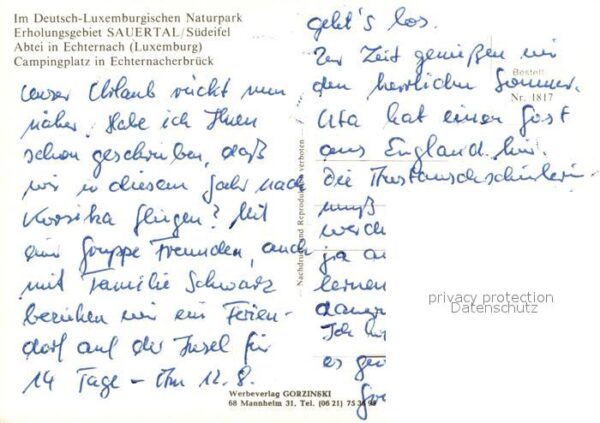 Im Deutsch-Luxemburgischen Naturpark
Erholungsgebiet SAUERTAL/Südeifel
Abtei in Echternach (Luxemburg)
Campingplatz in Echternacherbrück
Unser Urlaub rückt nun
näher. Habe ich Ihnen
schon geschrieben, daß
wir in diesem Jahr nach
Korsika fliegen? Mit
einer Gruppe Freunden, auch
mit Familie Schwarz
beziehen wir ein Ferien-
dorf auf der Insel für
14 Tage - Am 12.8.
geht's los.
Zur Zeit genießen wir
den herrlichen Sommer.
Uta hat einen Gast
aus England hier.
Die Austauschschülerin
muß
lernen
Ich
es
Bestell
Nr. 1817
Nachdruck und Reproduktion verboten
privacy protection
Datenschutz
Werbeverlag GORZINSKI
68 Mannheim 31, Tel. (06 21) 75